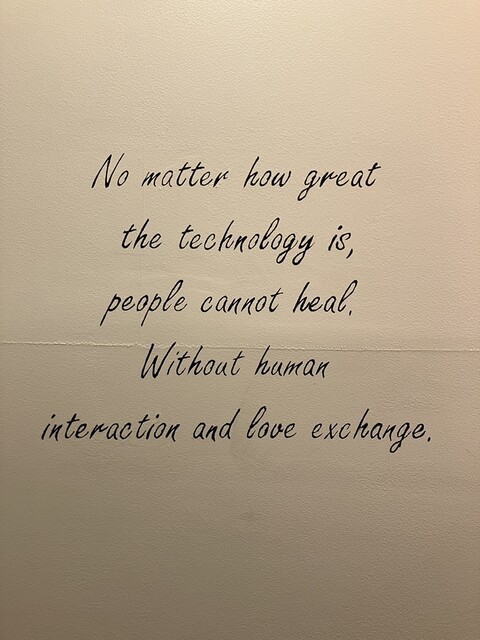 No matter how great
the technology is,
people cannot heal.
Without human
interaction and love exchange.